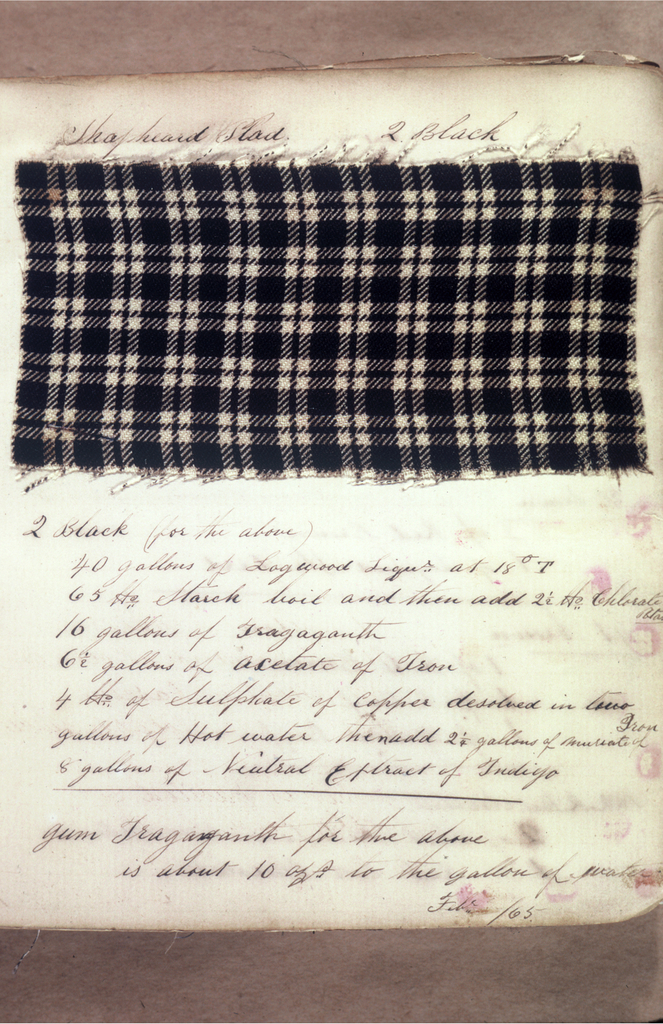 Shapheard Plad. 2 Black
2 Black (for the above)
40 gallons of Logwood Liqur. at 18° T
65 lb Starch boil and then add 2½ lb Chlorate
16 gallons of Tragaganth
6½ gallons of acetate of Iron
4 lb of Sulphate of Copper desolved in two
gallons of Hot water then add 2½ gallons of muriate of Iron
8 gallons of Neutral Extract of Indigo
gum Tragaganth for the above
is about 10 ozs to the gallon of water
Feb. /65